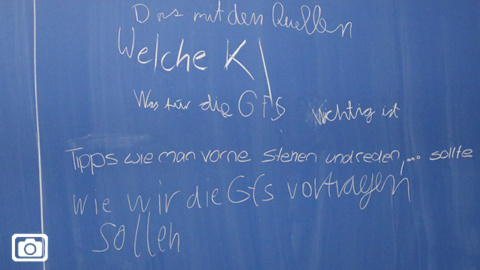 Das mit den Quellen
Welche Kl
Was für die Gfs wichtig ist
Tipps wie man vorne stehen und reden,... sollte
wie wir die Gfs vortragen
sollen